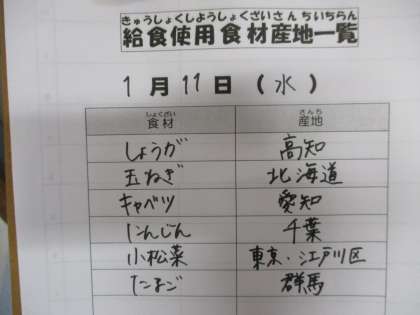 きゅうしょくしようしょくざいさんちいちらん
給食使用食材産地一覧
1月11日(水)
しょくざい さんち
食材 産地
しょうが 高知
玉ねぎ 北海道
キャベツ 愛知
にんじん 千葉
小松菜 東京・江戸川区
たまご 群馬